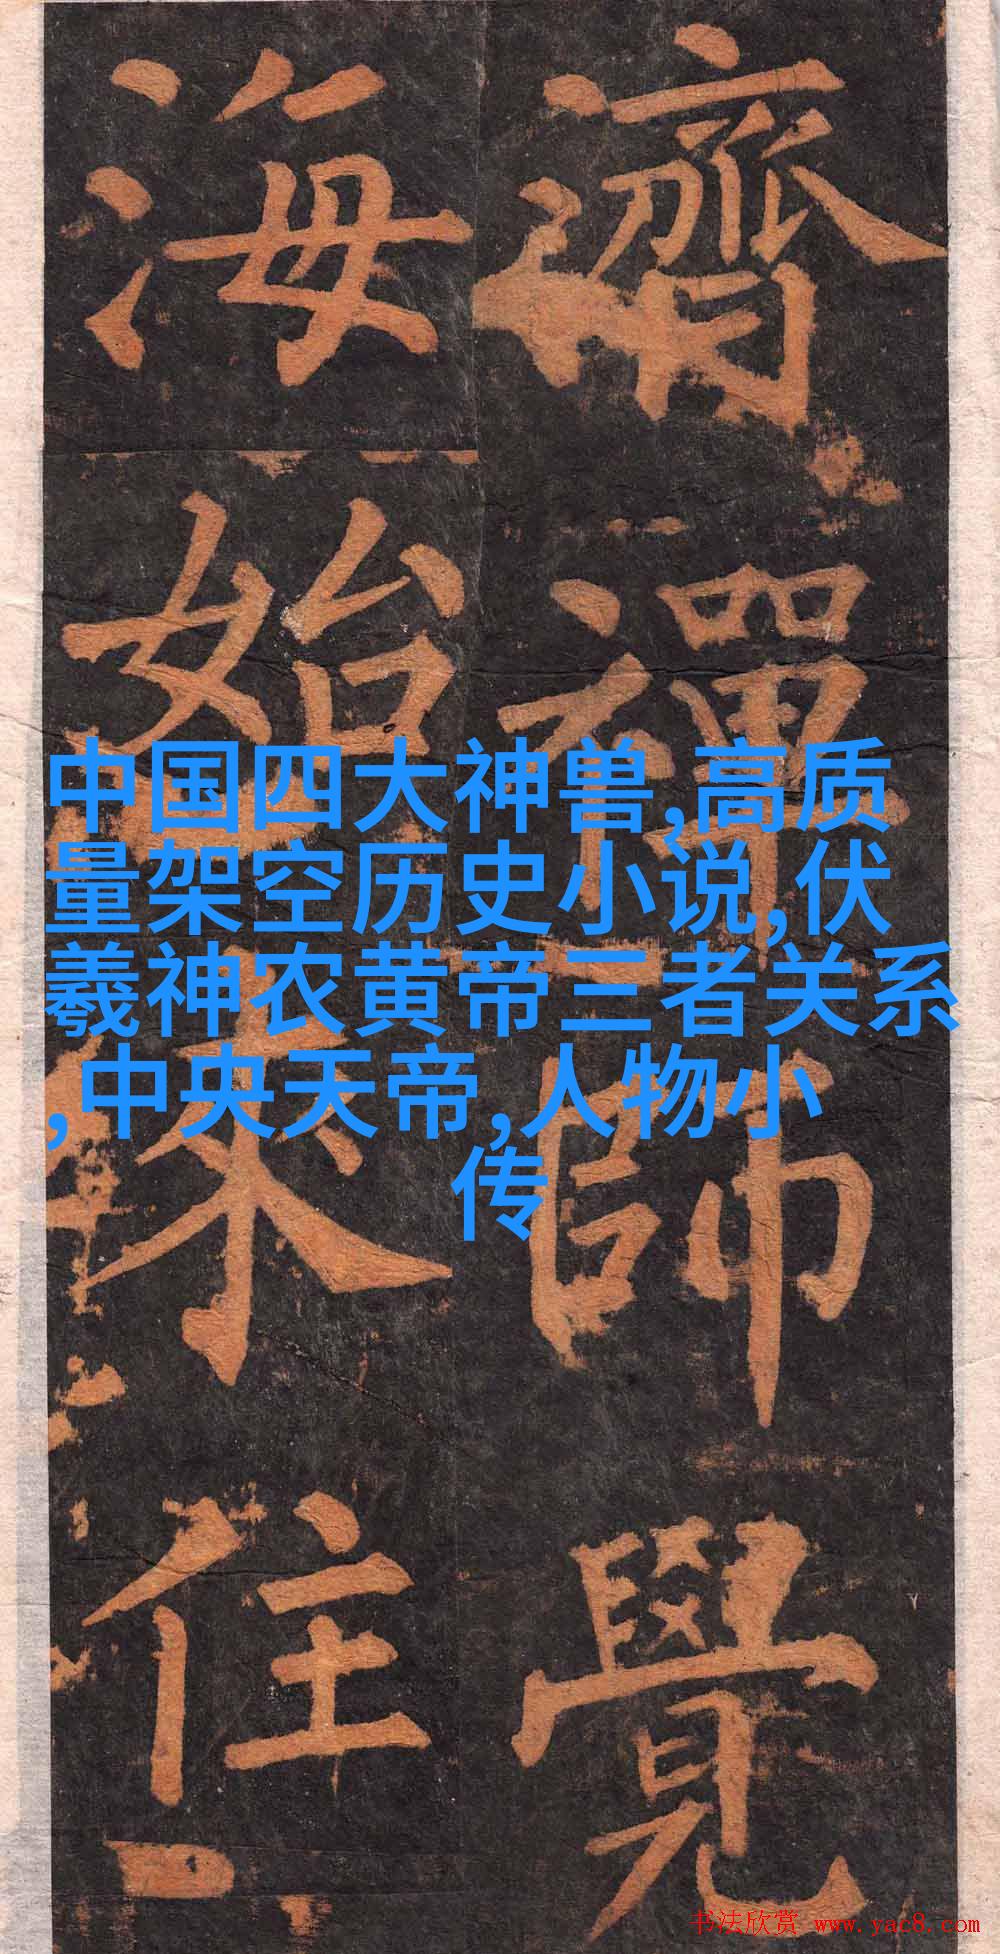 濟禪師覺
海始來住
中国四大神兽,高质
量架空历史小说,伏
羲神农黄帝三者关系
,中央天帝,人物小
传
书法欣赏 www.yac8.com